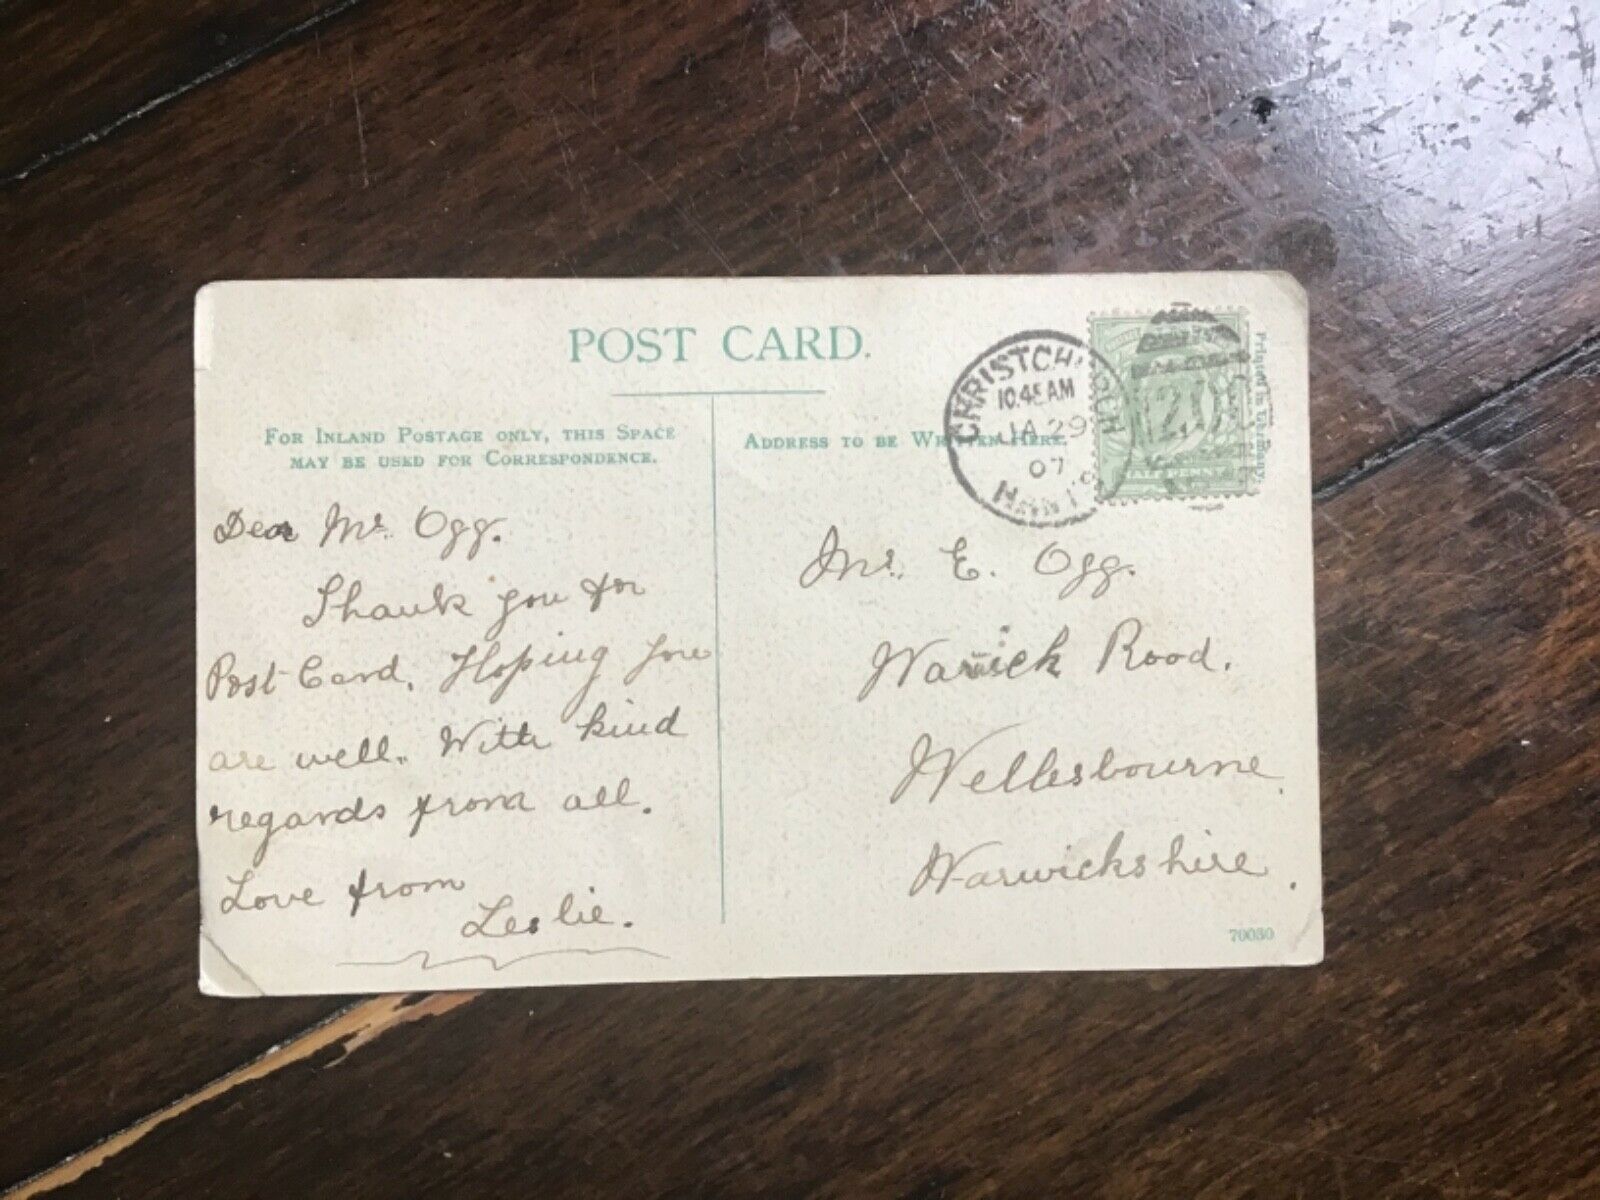 POST CARD.
FOR INLAND POSTAGE ONLY, THIS SPACE
MAY BE USED FOR CORRESPONDENCE.
Dear Mr. Ogg.
Thank you for
Post Card. Hoping you
are well. With kind
regards from all.
Love from
Leslie.
ADDRESS TO BE WRITTEN HERE.
CHRISTCHURCH
10.45 AM
JA 29
07
HANTS
HALF PENNY
Printed in Germany.
Mr. E. Ogg.
Warwick Road.
Wellesbourne.
Warwickshire.
70030